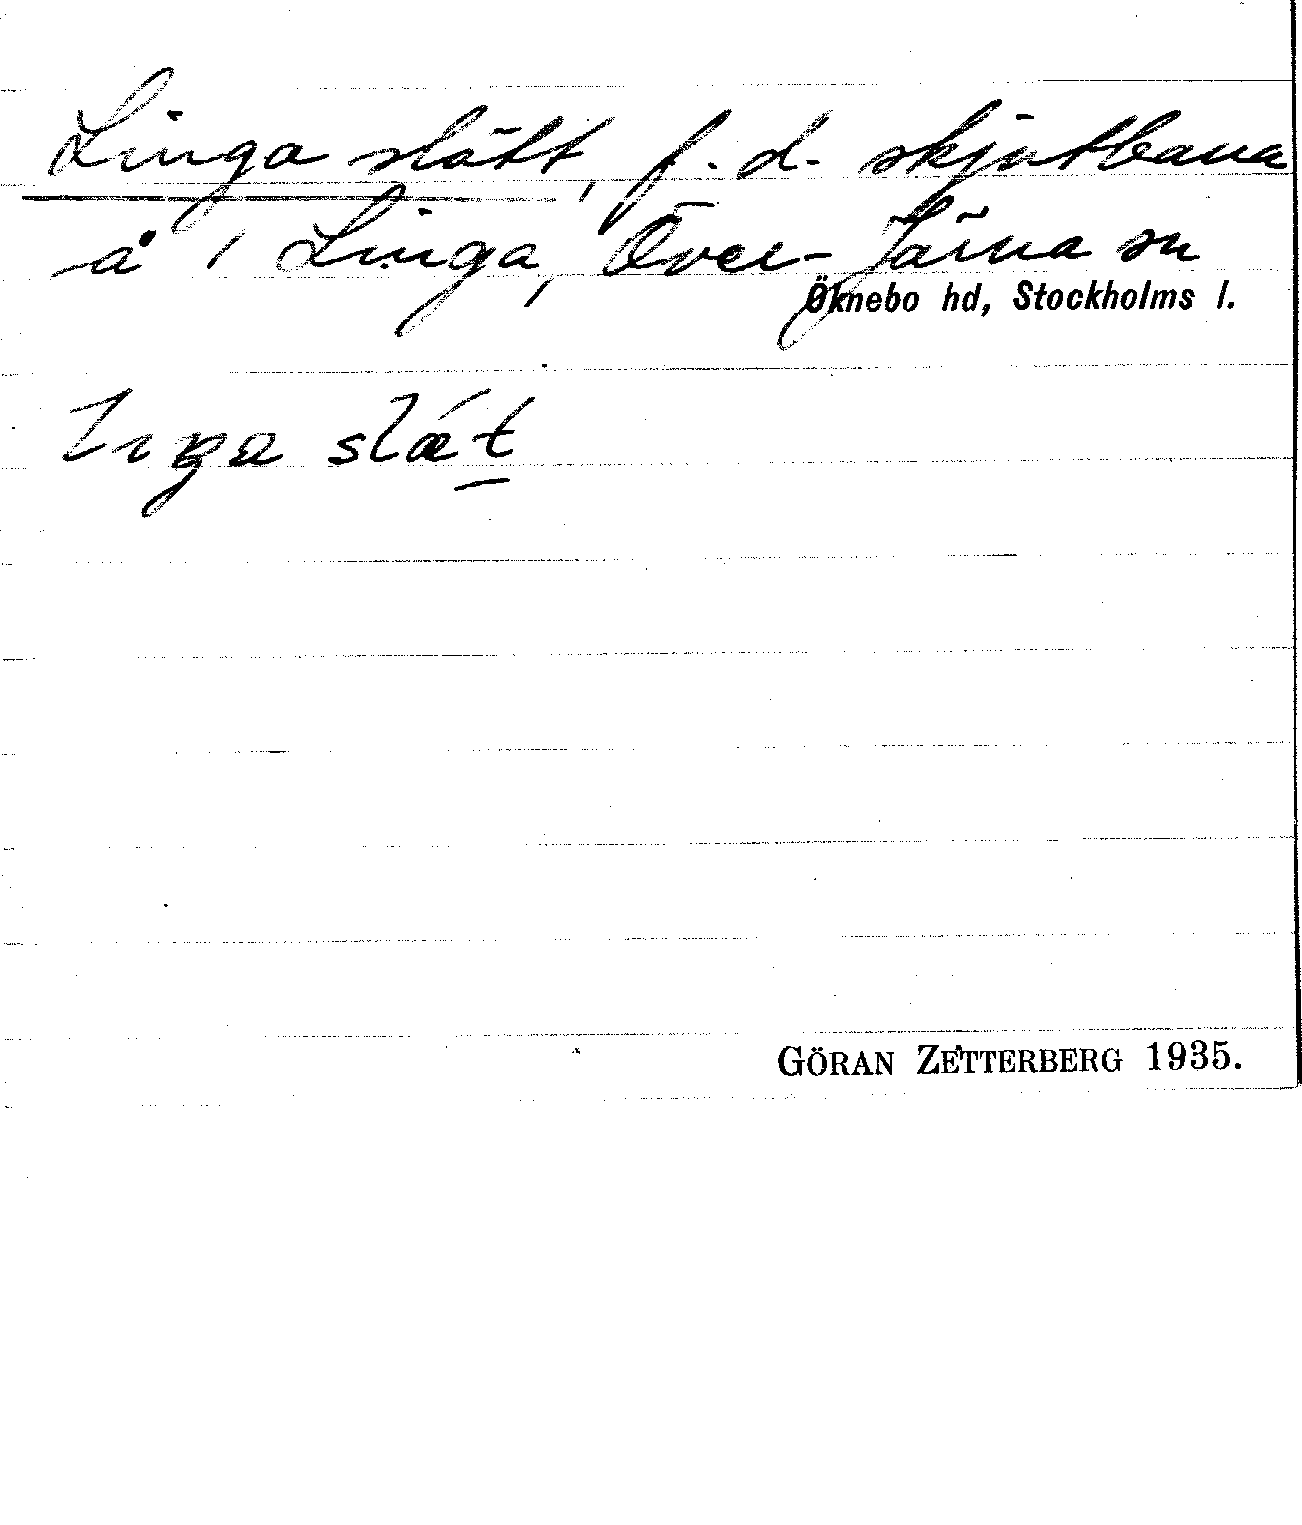 Linga slätt, f. d. skjutbana
å 1 Linga, Över-Järna sn
Öknebo hd, Stockholms l.
slǽt
GÖRAN ZETTERBERG 1935.